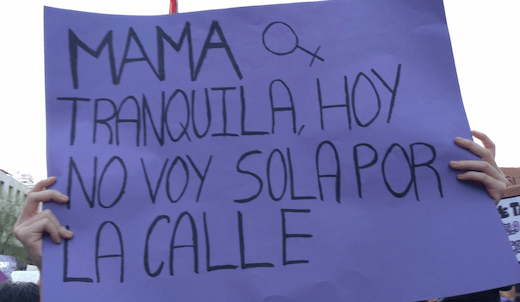 MAMA ♀
TRANQUILA, HOY
NO VOY SOLA POR
LA CALLE